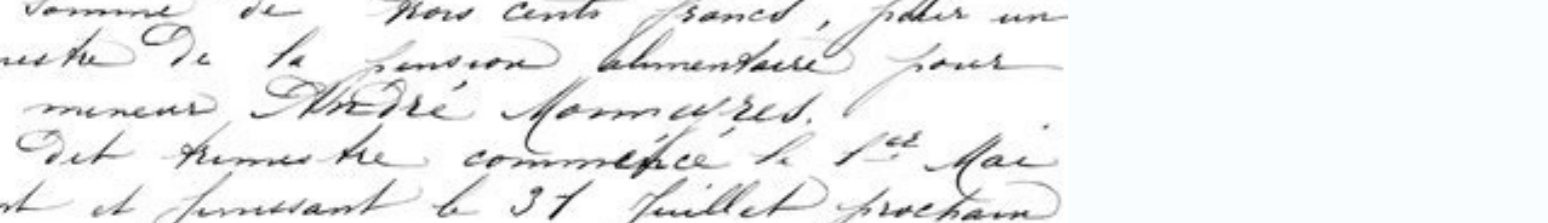 Somme de trois cents francs, pour un
mestre de la pension alimentaire pour
mineur André Monmayres.
Dit trimestre commencé le 1er Mai
et finissant le 31 Juillet prochain